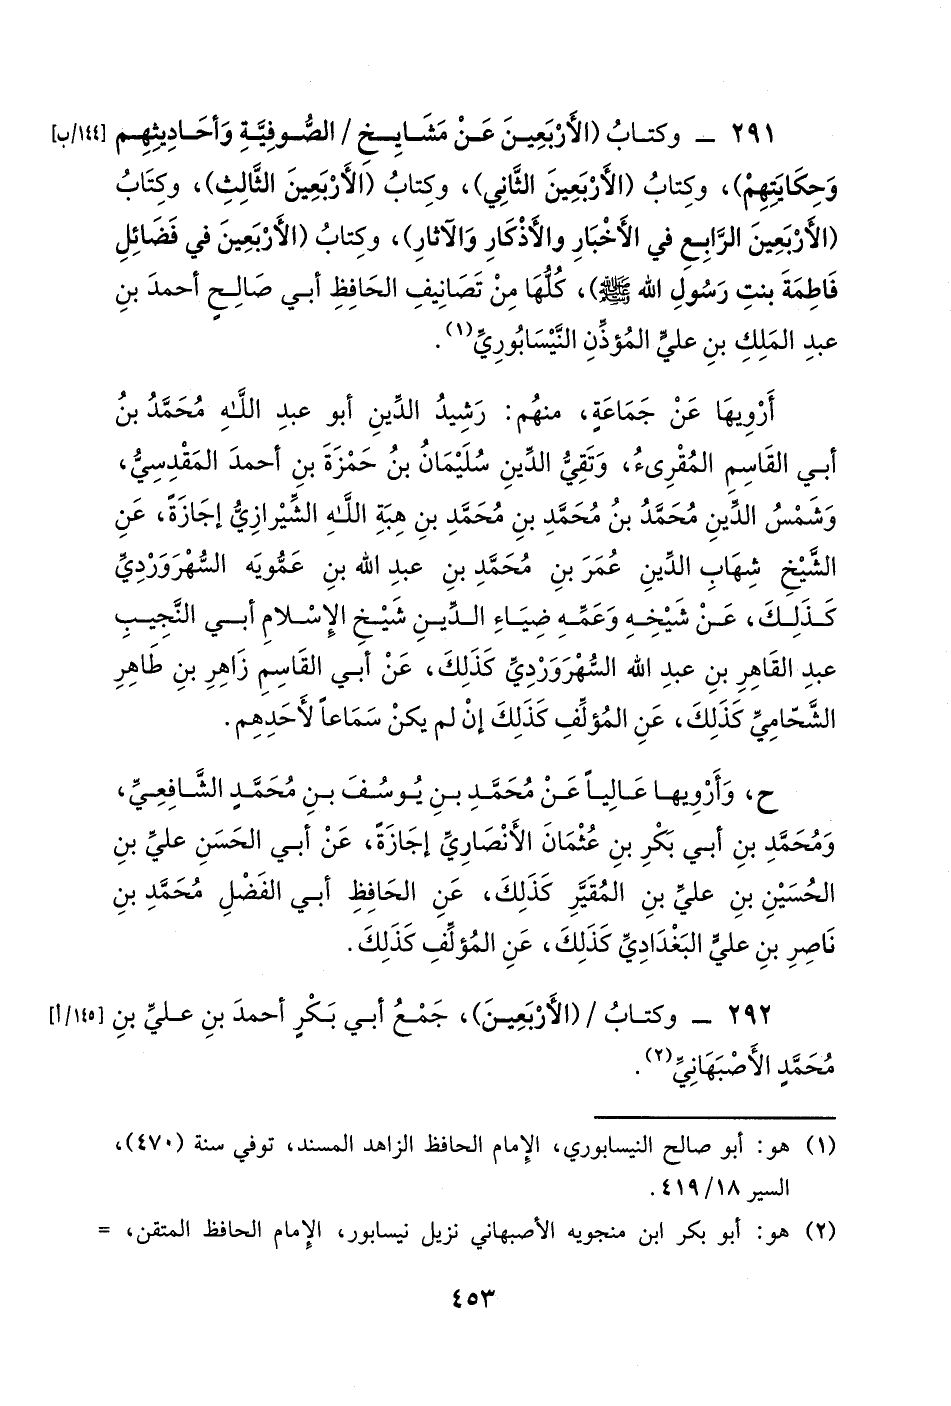 ٢٩١ ــ وكتابُ (الأَرْبَعِينَ عَنْ مَشَايِخِ / الصُّوفِيَّةِ وَأَحَادِيثِهِم [١٤٤/ب]
وَحِكَايَتِهِمْ)، وكِتابُ (الأَرْبَعِينَ الثَّانِي)، وكِتابُ (الأَرْبَعِينَ الثَّالِثِ)، وكِتَابُ
(الأَرْبَعِينَ الرَّابِعِ في الأَخْبَارِ والأَذْكَارِ وَالآثارِ)، وكتابُ (الأَرْبَعِينَ في فَضَائِلِ
فَاطِمَةَ بنتِ رَسُولِ الله ﷺ)، كُلُّهَا مِنْ تَصَانِيفِ الحَافِظِ أبي صَالِحٍ أحمدَ بنِ
عبدِ المَلِكِ بنِ عليٍّ المُؤذِّنِ النَّيْسَابُوريِّ(١).
أَرْوِيهَا عَنْ جَمَاعَةٍ، منهُم: رَشِيدُ الدِّينِ أبو عبدِ اللَّهِ مُحَمَّدُ بنُ
أبي القَاسِمِ المُقْرِىءُ، وَتَقِيُّ الدِّينِ سُلَيْمَانُ بنُ حَمْزَةَ بنِ أحمدَ المَقْدِسِيُّ،
وَشَمْسُ الدِّينِ مُحَمَّدُ بنُ مُحَمَّدِ بنِ مُحَمَّدِ بنِ هِبَةِ اللَّهِ الشِّيْرازِيُّ إجَازَةً، عَنِ
الشَّيْخِ شِهَابِ الدِّينِ عُمَرَ بنِ مُحَمَّدِ بنِ عبدِ الله بنِ عَمُّويَه السُّهْرَوَرْدِيِّ
كَذَلِكَ، عَنْ شَيْخِهِ وَعَمِّهِ ضِيَاءِ الدِّينِ شَيْخِ الإِسْلامِ أبي النَّجِيبِ
عبدِ القَاهِرِ بنِ عبدِ الله السُّهْرَوَرْدِيِّ كَذَلِكَ، عَنْ أبي القَاسِمِ زَاهِرِ بنِ طَاهِرِ
الشَّحَّامِيِّ كَذَلِكَ، عَنِ المُؤلِّفِ كَذَلِكَ إنْ لم يكنْ سَمَاعاً لأَحَدِهِم.
ح، وَأَرْويها عَالِياً عَنْ مُحَمَّدِ بنِ يُوسُفَ بنِ مُحَمَّدٍ الشَّافِعِيِّ،
وَمُحَمَّدِ بنِ أبي بَكْرِ بنِ عُثْمَانَ الأَنْصَارِيِّ إجَازَةً، عَنْ أبي الحَسَنِ عليِّ بنِ
الحُسَيْنِ بنِ عليِّ بنِ المُقَيَّرِ كَذَلِكَ، عَنِ الحَافِظِ أبي الفَضْلِ مُحَمَّدِ بنِ
نَاصِرِ بنِ عليٍّ البَغْدَادِيِّ كَذَلِكَ، عَنِ المُؤلِّفِ كَذَلِكَ.
٢٩٢ ــ وكتابُ / (الأَرْبَعِينَ)، جَمْعُ أبي بَكْرٍ أحمدَ بنِ عليِّ بنِ [١٤٥/أ]
مُحَمَّدٍ الأَصْبَهَانِيِّ(٢).
(١) هو: أبو صالح النيسابوري، الإمام الحافظ الزاهد المسند، توفي سنة (٤٧٠)،
السير ٤١٩/١٨.
(٢) هو: أبو بكر ابن منجويه الأصبهاني نزيل نيسابور، الإمام الحافظ المتقن، =
٤٥٣